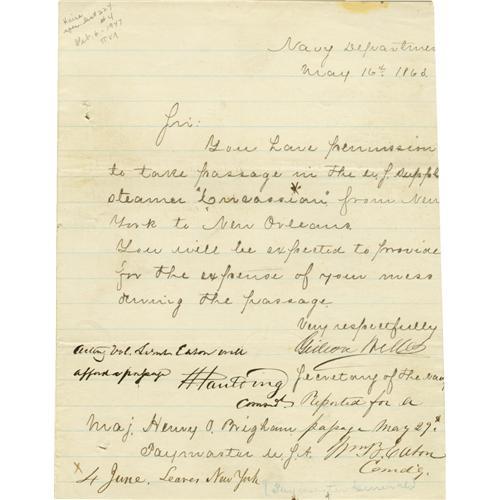 Navy Departmen
May 16th. 1863
Sir:
You have permission
to take passage in the U.S. Suppl
steamer "Circassian" from New
York to New Orleans.
You will be expected to provide
for the expense of your mess
during the passage.
Very respectfully
Gideon Welles
Secretary of the Navy
Acting Vol. Lieut Eaton will
afford a passage
H Paulding
Comdt
Reported for a
passage May 29th
Wm B. Eaton
Comd'g.
Maj. Henry O. Brigham
Paymaster U.S.A.
4 June. Leaves New York